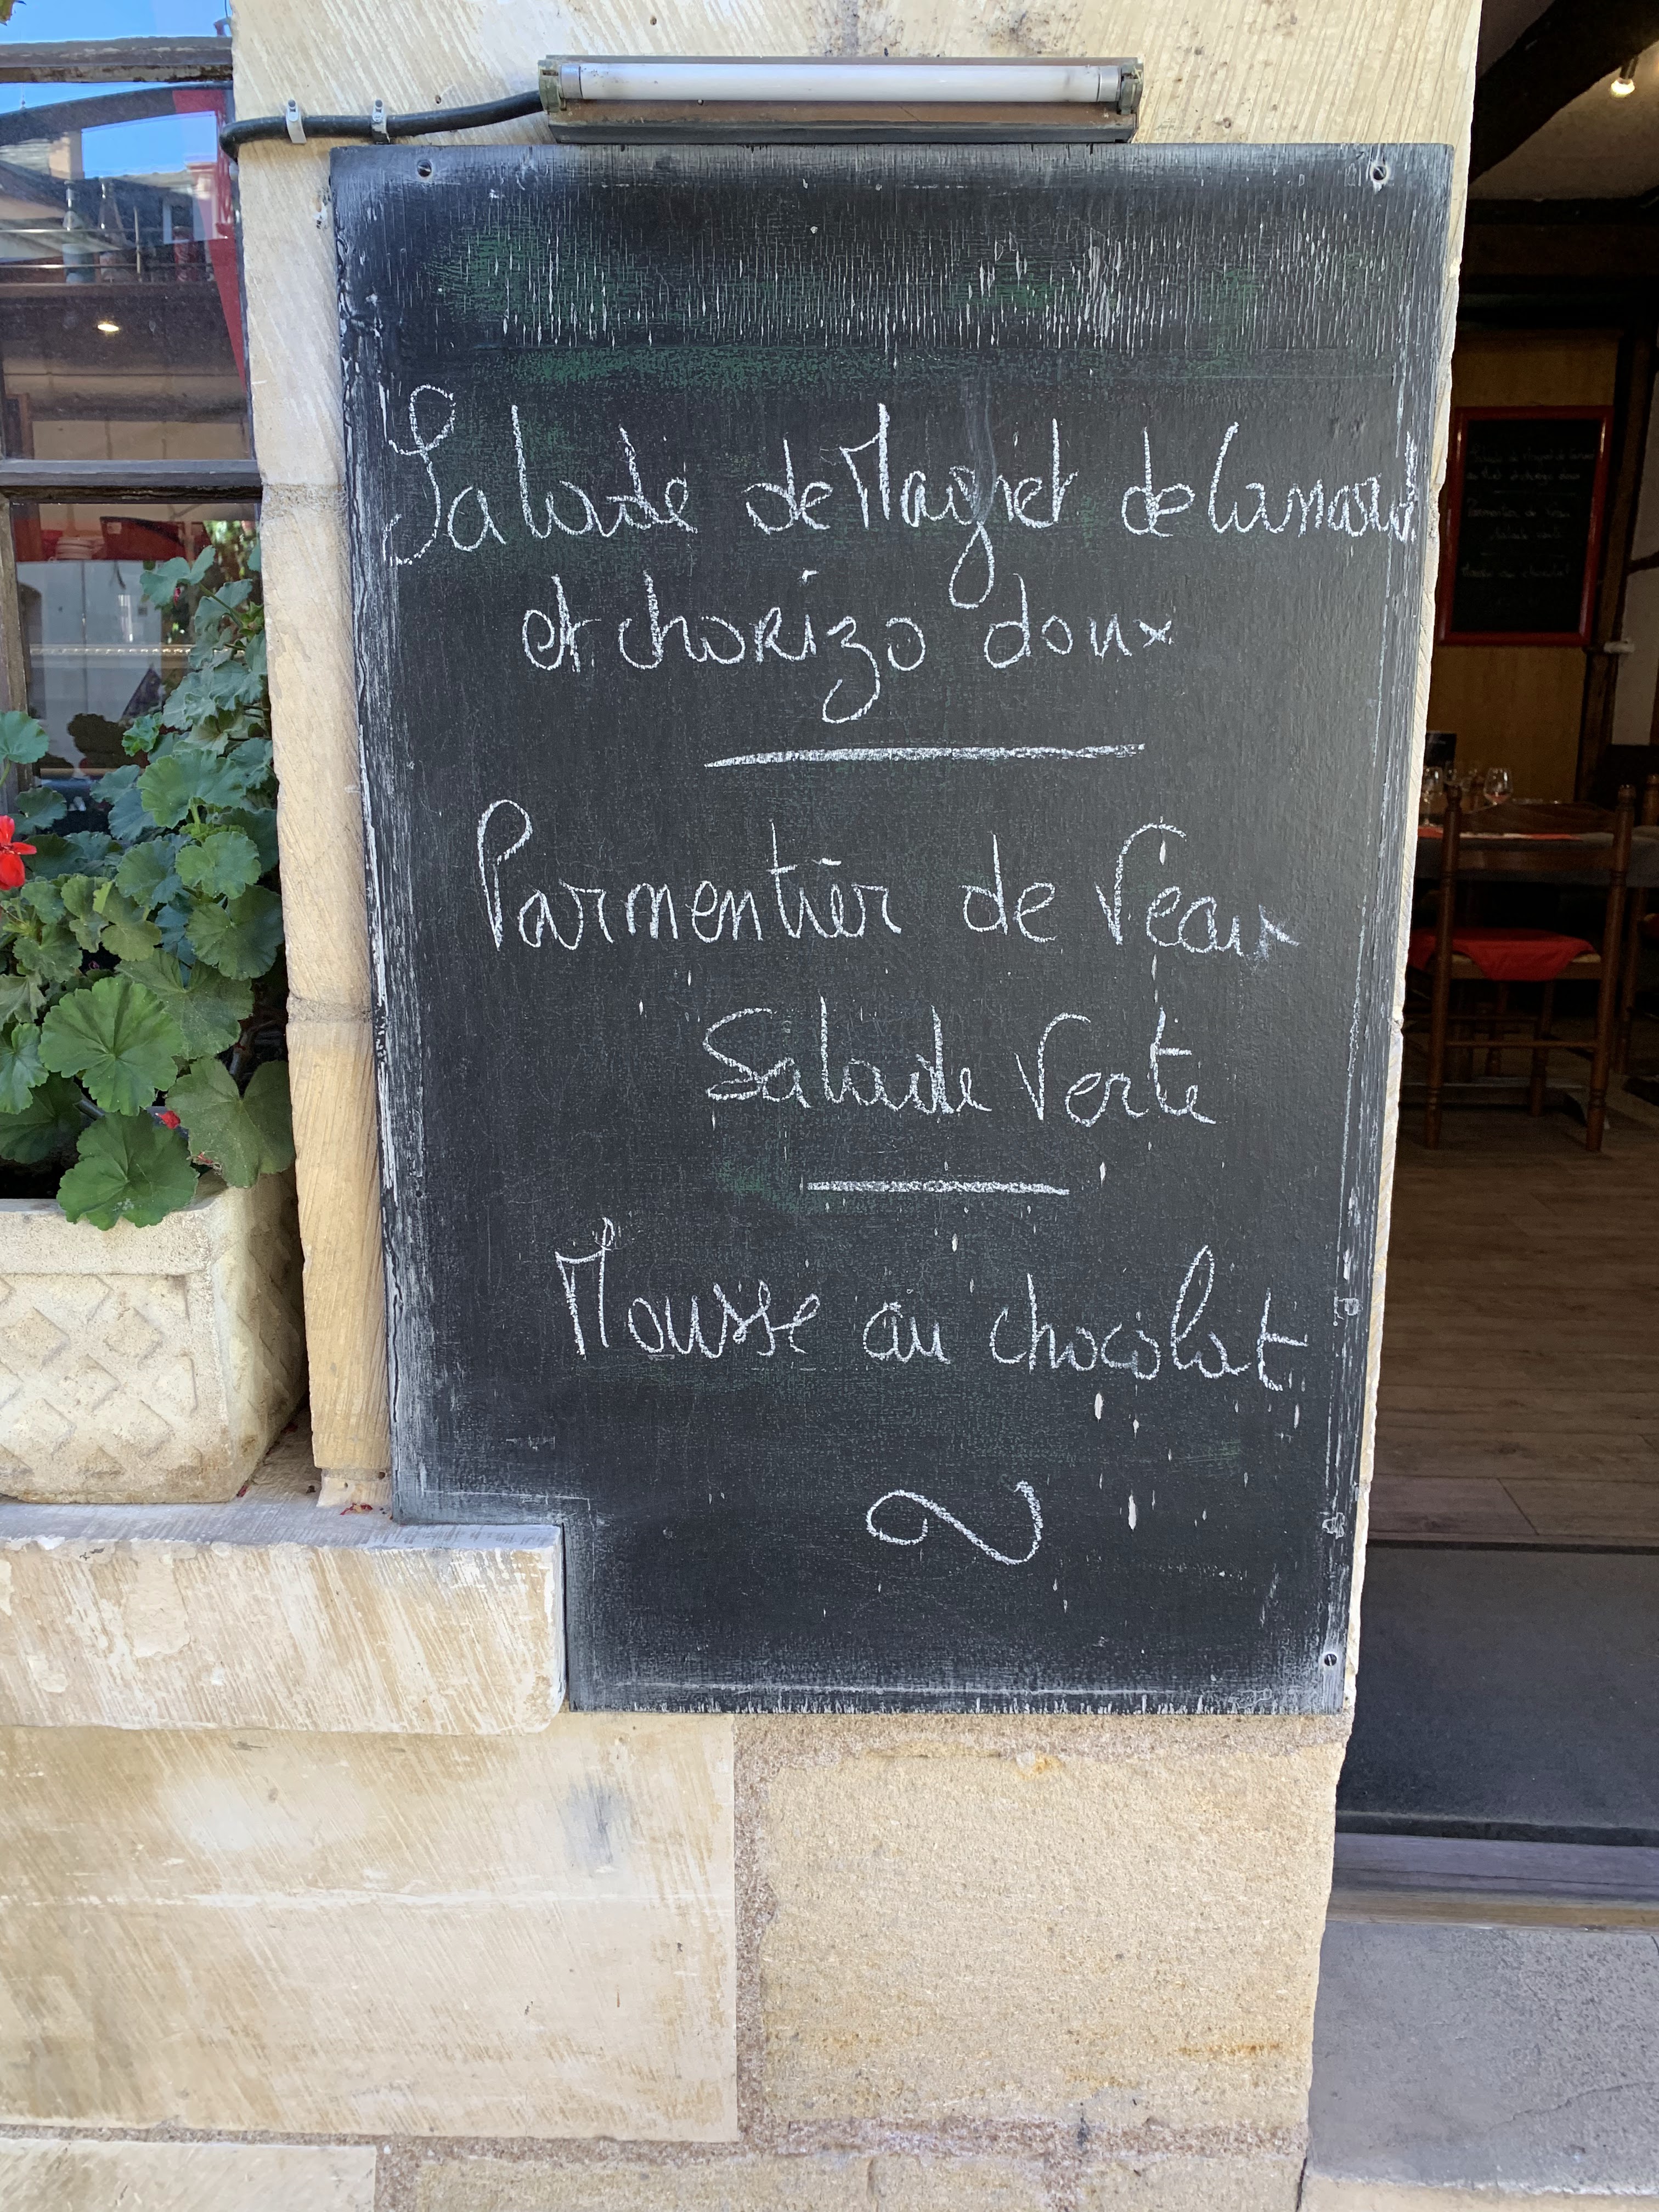 Salade de Magret de Canard
et chorizo doux
Parmentier de Veau
Salade Verte
Mousse au chocolat